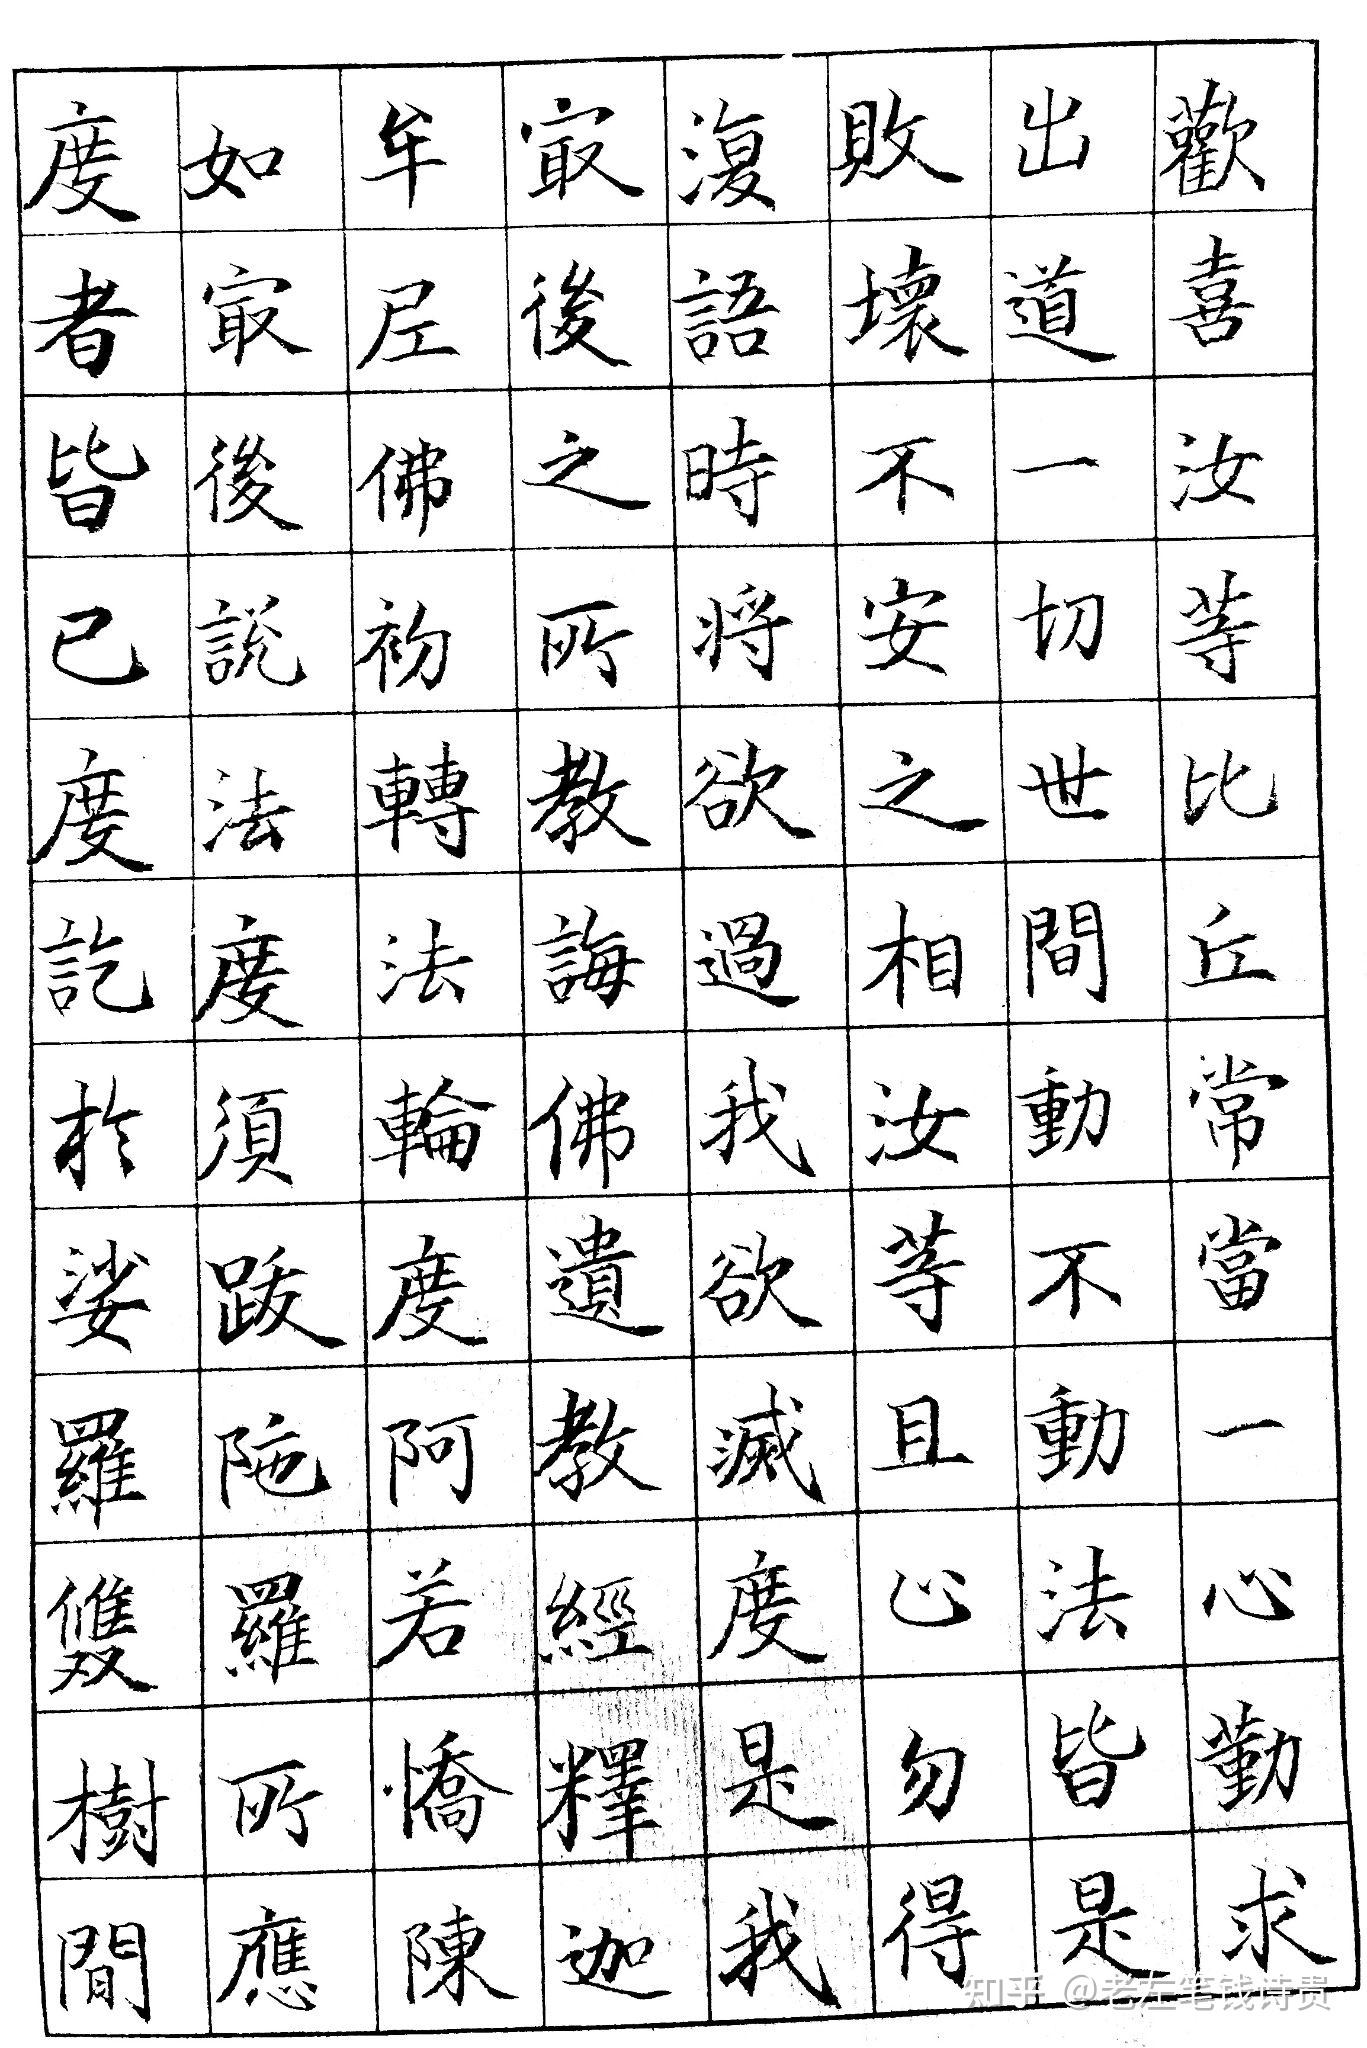 歡喜汝等比丘常當一心勤求
出道一切世間動不動法皆是
敗壞不安之相汝等且心勿得
復語時將欲過我欲滅度是我
最後之所教誨佛遺教經釋迦
牟尼佛初轉法輪度阿若憍陳
如最後說法度須跋陁羅所應
度者皆已度訖於娑羅雙樹間
知乎 @老左笔钱诗贵